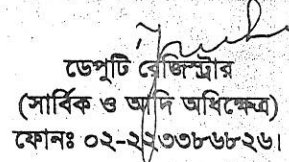 ডেপুটি রেজিস্ট্রার
(সার্বিক ও আদি অধিক্ষেত্র)
ফোনঃ ০২-২২৩৩৮৬৮২৬।